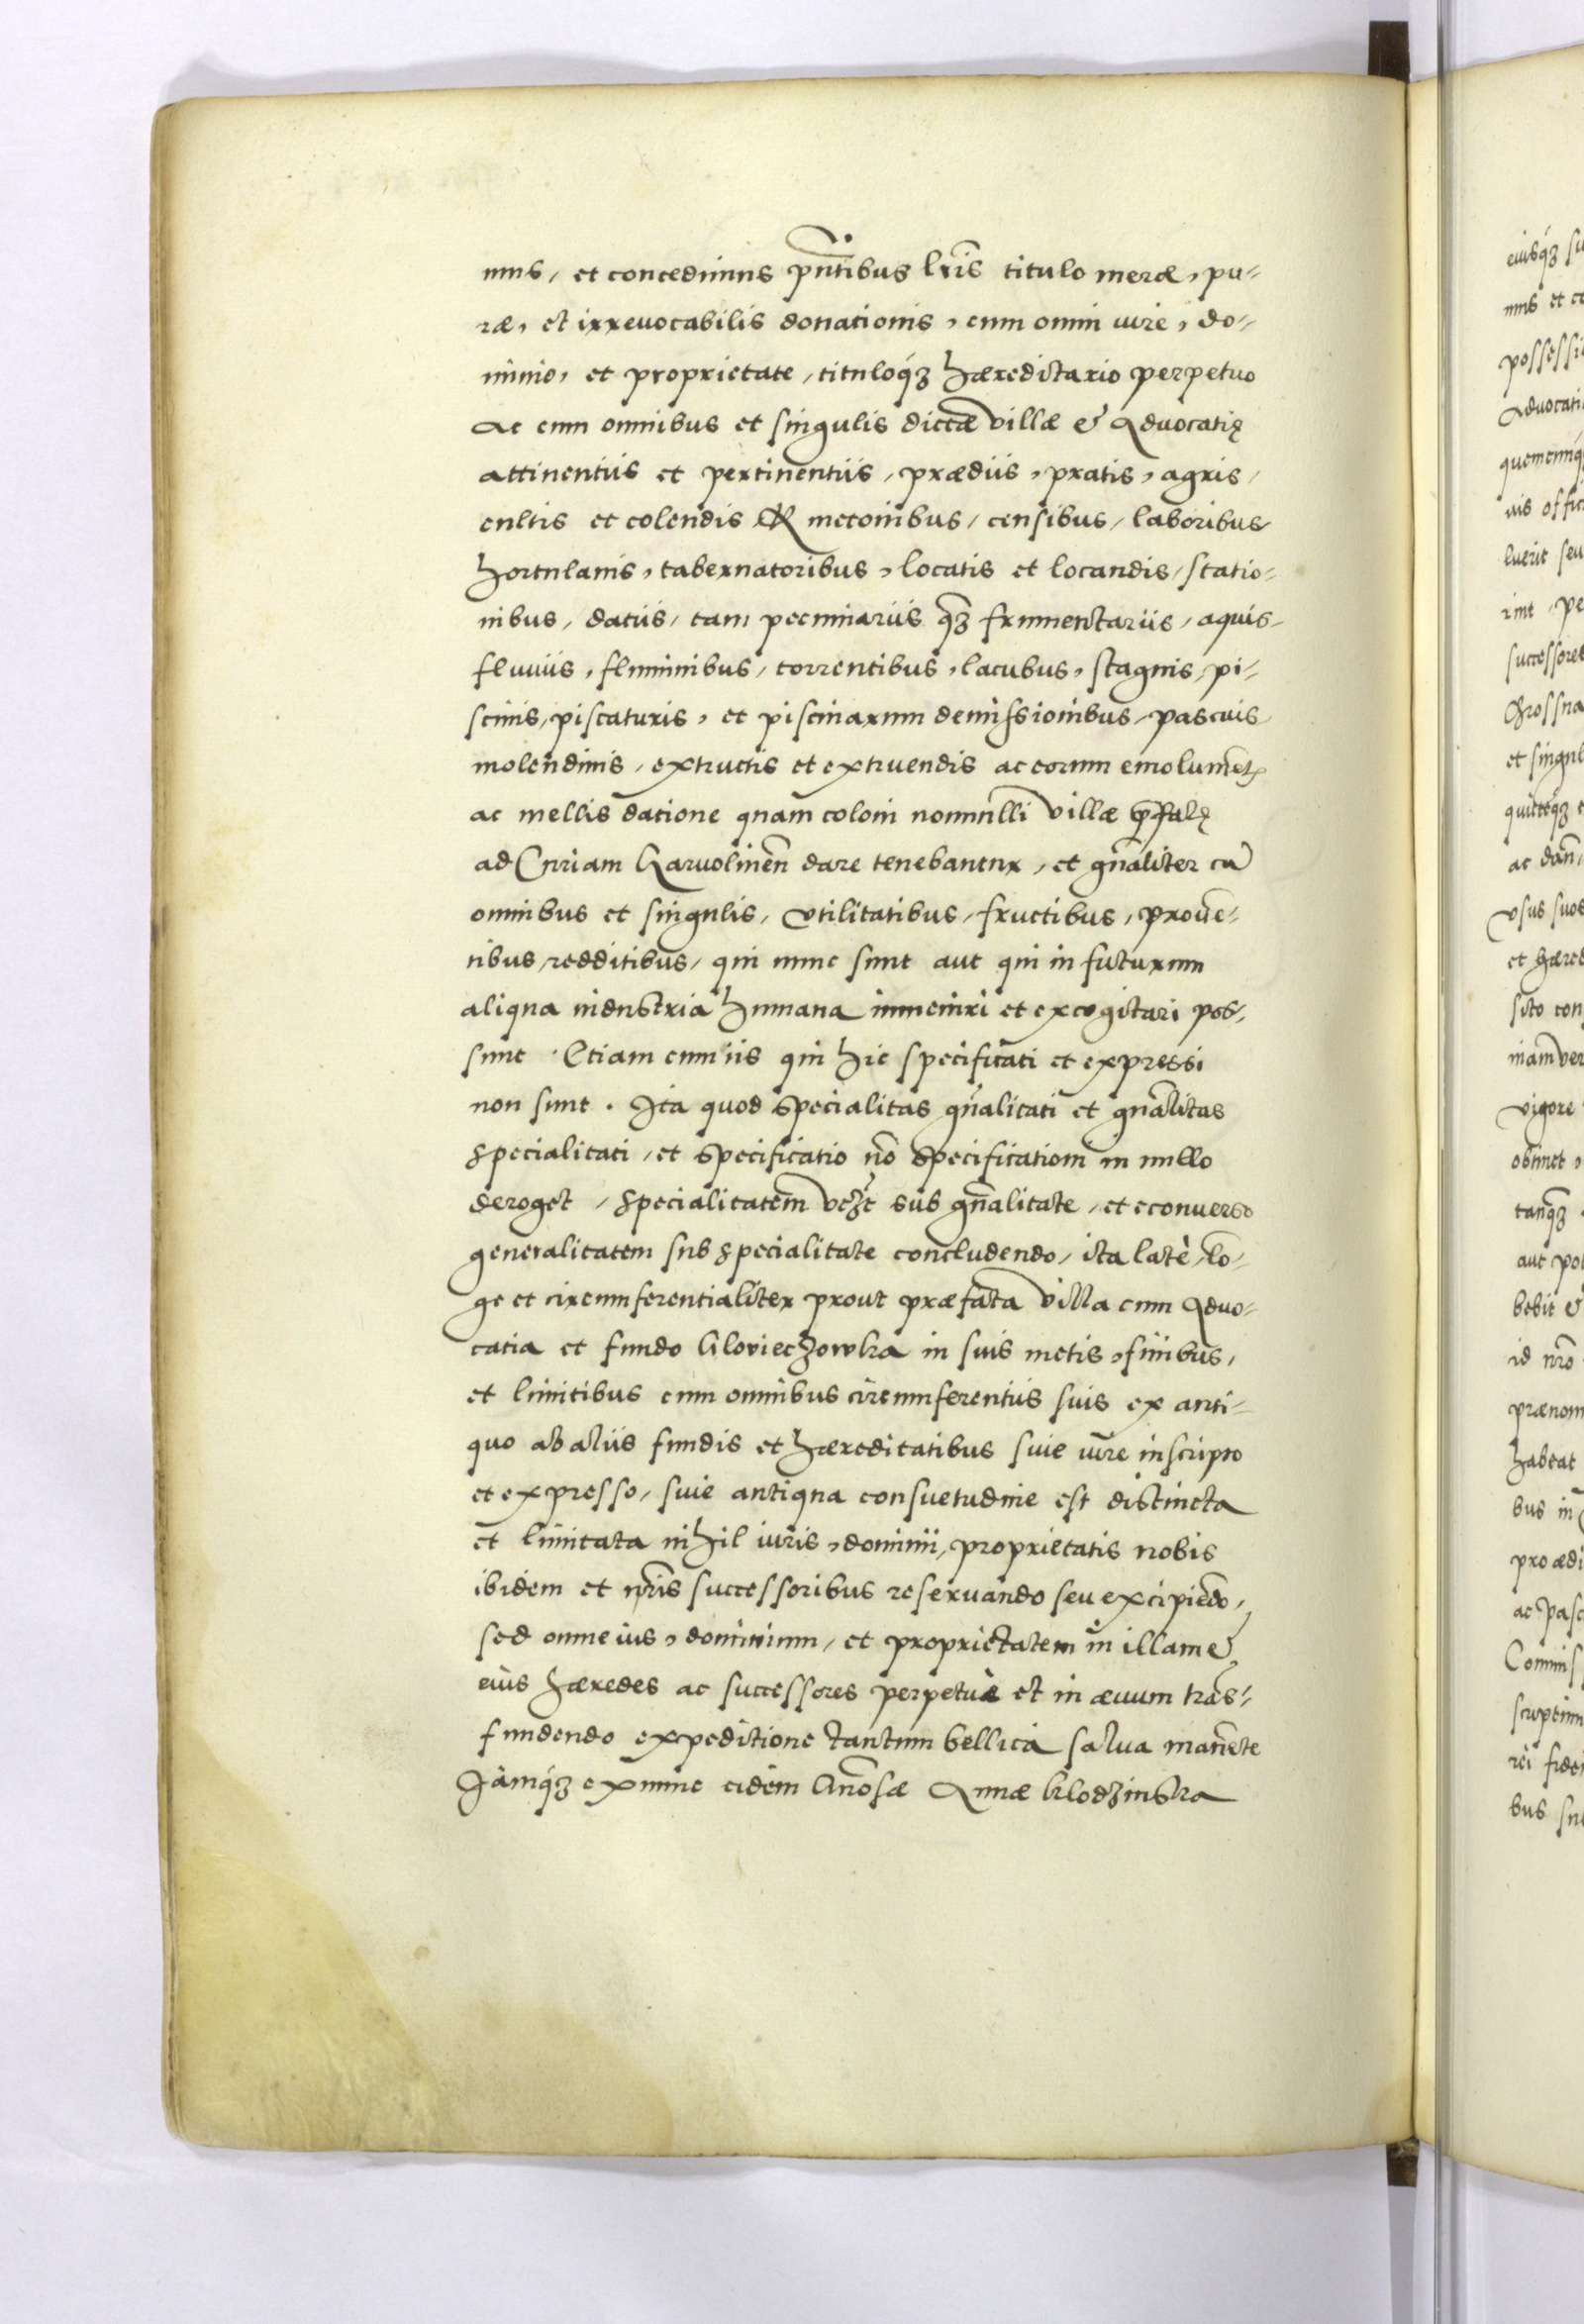 mus, et concedimus pñtibus lr̃is titulo meræ, pu-
ræ, et irreuocabilis donationis, cum omni iure, do-
minio, et proprietate, tituloq́ʒ hæreditario perpetuo
ac cum omnibus et singulis dictæ villæ & Aduocatię
attinentiis et pertinentiis, prædiis, pratis, agris,
cultis et colendis & metonibus, censibus, laboribus
hortulanis, tabernatoribus, locatis et locandis, statio-
nibus, datiis, tam pecuniariis q̃ʒ frumentariis, aquis,
fluuiis, fluminibus, torrentibus, lacubus, stagnis, pi-
scinis, piscaturis, et piscinarum demissionibus, pascuis
molendinis, extructis et extruendis ac eorum emolumẽt
ac mellis datione quam coloni nonnulli villæ
ad Curiam Garuolinen̄ dare tenebantur, et gn̄aliter cū
omnibus et singulis, vtilitatibus, fructibus, prouē-
tibus, redditibus, qui nunc sunt aut qui in futurum
aliqua industria humana inueniri et excogitari pos-
sunt. Etiam cum iis qui hic specificati et expressi
non sunt. Ita quod specialitas gn̄alitati et gn̄alitas
specialitati, et specificatio nō specificationi in nullo
deroget, specialitatem sub gn̄alitate, et econuerso
generalitatem sub specialitate concludendo, ita latè, lō-
ge et circumferentialiter prout præfata villa cum Aduo-
catia et fundo Glovieczowka in suis metis, finibus,
et limitibus cum omnibus circumferentiis suis ex anti-
quo ab aliis fundis et hæreditatibus siue iure inscripto
et expresso, siue antiqua consuetudine est distincta
et limitata nihil iuris, dominii, proprietatis nobis
ibidem et nr̃is successoribus reseruando seu excipiēdo,
sed omne ius, dominium, et proprietatem in illam &
eius hæredes ac successores perpetuè et in æuum trās-
fundendo expeditione tantum bellica salua manēte
Iamq́ʒ ex nunc eidem Gn̄osæ Annæ Klodzinska